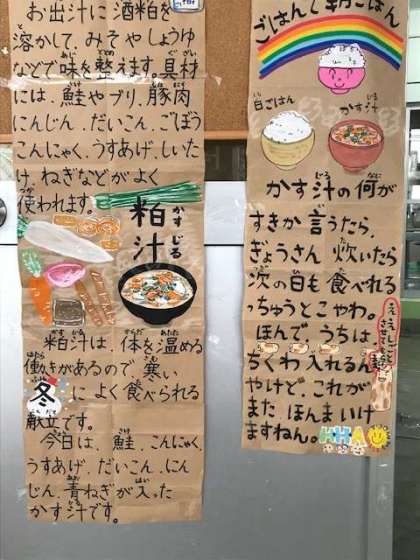 お出汁に酒粕を
溶かして、みそやしょうゆ
などで味を整えます。具材
には、鮭やブリ、豚肉
にんじん、だいこん、ごぼう
こんにゃく、うすあげ、しいた
け、ねぎなどがよく
使われます。
粕汁
かすじる
粕汁は、体を温める
働きがあるので、寒い
冬によく食べられる
献立です。
今日は、鮭、こんにゃく、
うすあげ、だいこん、にん
じん、青ねぎが入った
かす汁です。
ごはんで朝ごはん
白ごはん
かす汁
かす汁の何が
すきか言うたら、
ぎょうさん炊いたら
次の日も食べれる
っちゅうとこやわ。
ほんで、うちは、
ちくわ入れるん
やけど、これが
また、ほんまいけ
ますねん。